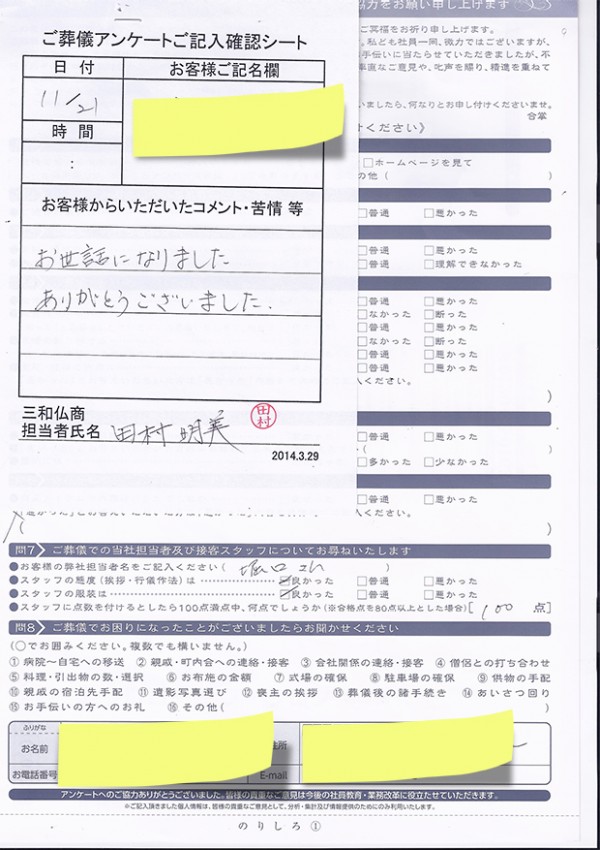 ご葬儀アンケートご記入確認シート
日付
お客様ご記名欄
11/21
時間
:
お客様からいただいたコメント・苦情 等
お世話になりました
ありがとうございました.
三和仏商
担当者氏名 田村 明美
田村
2014.3.29
協力をお願い申し上げます
ご冥福をお祈り申し上げます。
私ども社員一同、微力ではございますが、
手伝いに当たらせていただきましたが、不
率直なご意見や、叱声を賜り、精進を重ねて
いましたら、何なりとお申し付けくださいませ。
合掌
ください》
□ホームページを見て
の他( )
□普通 □悪かった
□普通 □悪かった
□普通 □理解できなかった
□普通 □悪かった
□なかった □断った
□普通 □悪かった
□なかった □断った
□普通 □悪かった
□普通 □悪かった
ください。
)
□普通 □悪かった
( )
□多かった □少なかった
□普通 □悪かった
ください。
( )
問7 ご葬儀での当社担当者及び接客スタッフについてお尋ねいたします
●お客様の弊社担当者名をご記入ください( 堀口さん )
●スタッフの態度(挨拶・行儀作法)は ☑良かった □普通 □悪かった
●スタッフの服装は ☑良かった □普通 □悪かった
●スタッフに点数を付けるとしたら100点満点中、何点でしょうか(※合格点を80点以上とした場合)[ 100 点]
問8 ご葬儀でお困りになったことがございましたらお聞かせください
(○でお囲みください。複数でも構いません。)
①病院〜自宅への移送 ②親戚・町内会への連絡・接客 ③会社関係の連絡・接客 ④僧侶との打ち合わせ
⑤料理・引出物の数・選択 ⑥お布施の金額 ⑦式場の確保 ⑧駐車場の確保 ⑨供物の手配
⑩親戚の宿泊先手配 ⑪遺影写真選び ⑫喪主の挨拶 ⑬葬儀後の諸手続き ⑭あいさつ回り
⑮お手伝いの方へのお礼 ⑯その他( )
ふりがな
お名前
住所
お電話番号
E-mail
アンケートへのご協力ありがとうございました。皆様の貴重なご意見は今後の社員教育・業務改革に役立たせていただきます。
※ご記入頂きました個人情報は、皆様の貴重なご意見として、分析・集計及び情報提供のためにのみ利用いたします。
のりしろ①